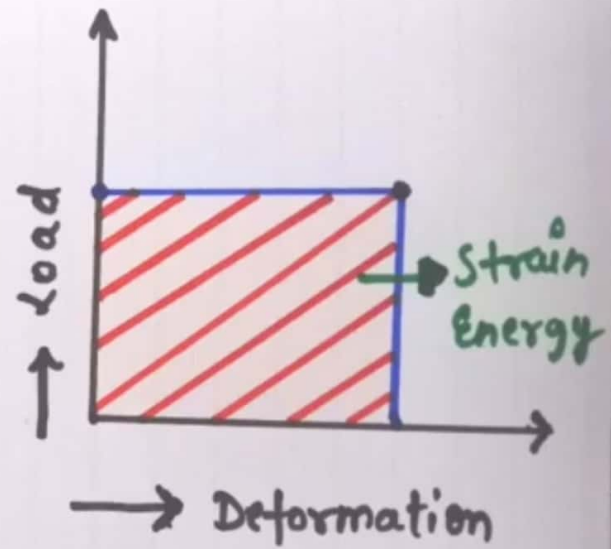 Load
Strain
Energy
Deformation